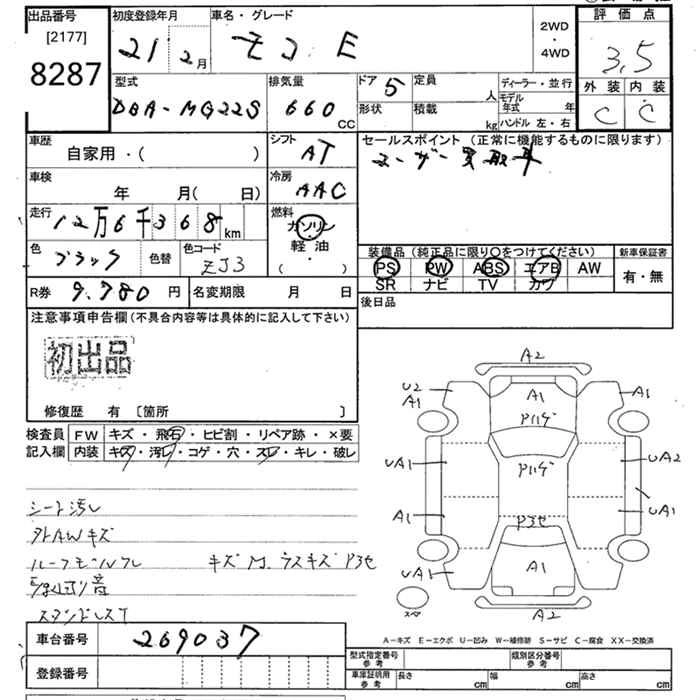 出品番号
[2177]
8287
初度登録年月
21 2月
車名・グレード
モコ E
2WD
・
4WD
評価点
3.5
外装 内装
C C
型式
DBA-MG22S
排気量
660
CC
ドア 5
定員
人
形状
積載
kg
ディーラー・並行
モデル年式 年
ハンドル 左・右
車歴
自家用・( )
シフト
AT
セールスポイント (正常に機能するものに限ります)
ユーザー買取車
車検
年 月( 日)
冷房
AAC
走行
12万6千368km
燃料
ガソリン
・
軽油
( )
色
ブラック
色替
色コード
ZJ3
装備品 (純正品に限り○をつけてください)
PS PW ABS エアB AW
SR ナビ TV カワ
新車保証書
有・無
R券 9.780 円
名変期限 月 日
後日品
注意事項申告欄 (不具合内容等は具体的に記入して下さい)
初出品
修復歴 有 〔箇所 〕
検査員記入欄
FW キズ・飛石・ヒビ割・リペア跡・×要
内装 キズ・汚レ・コゲ・穴・スレ・キレ・破レ
シート汚レ
外AWキズ
キズ M. ラスキズ P3セ
A2
U2
A1
A1
A1
P11ゲ
UA1
P11ゲ
UA2
A1
P3セ
UA1
UA1
A1
A2
スペア
A-キズ E-エクボ U-凹み W-補修跡 S-サビ C-腐食 XX-交換済
車台番号
269037
登録番号
型式指定番号
参考
類別区分番号
参考
車庫証明用
参考
長さ cm
幅 cm
高さ cm